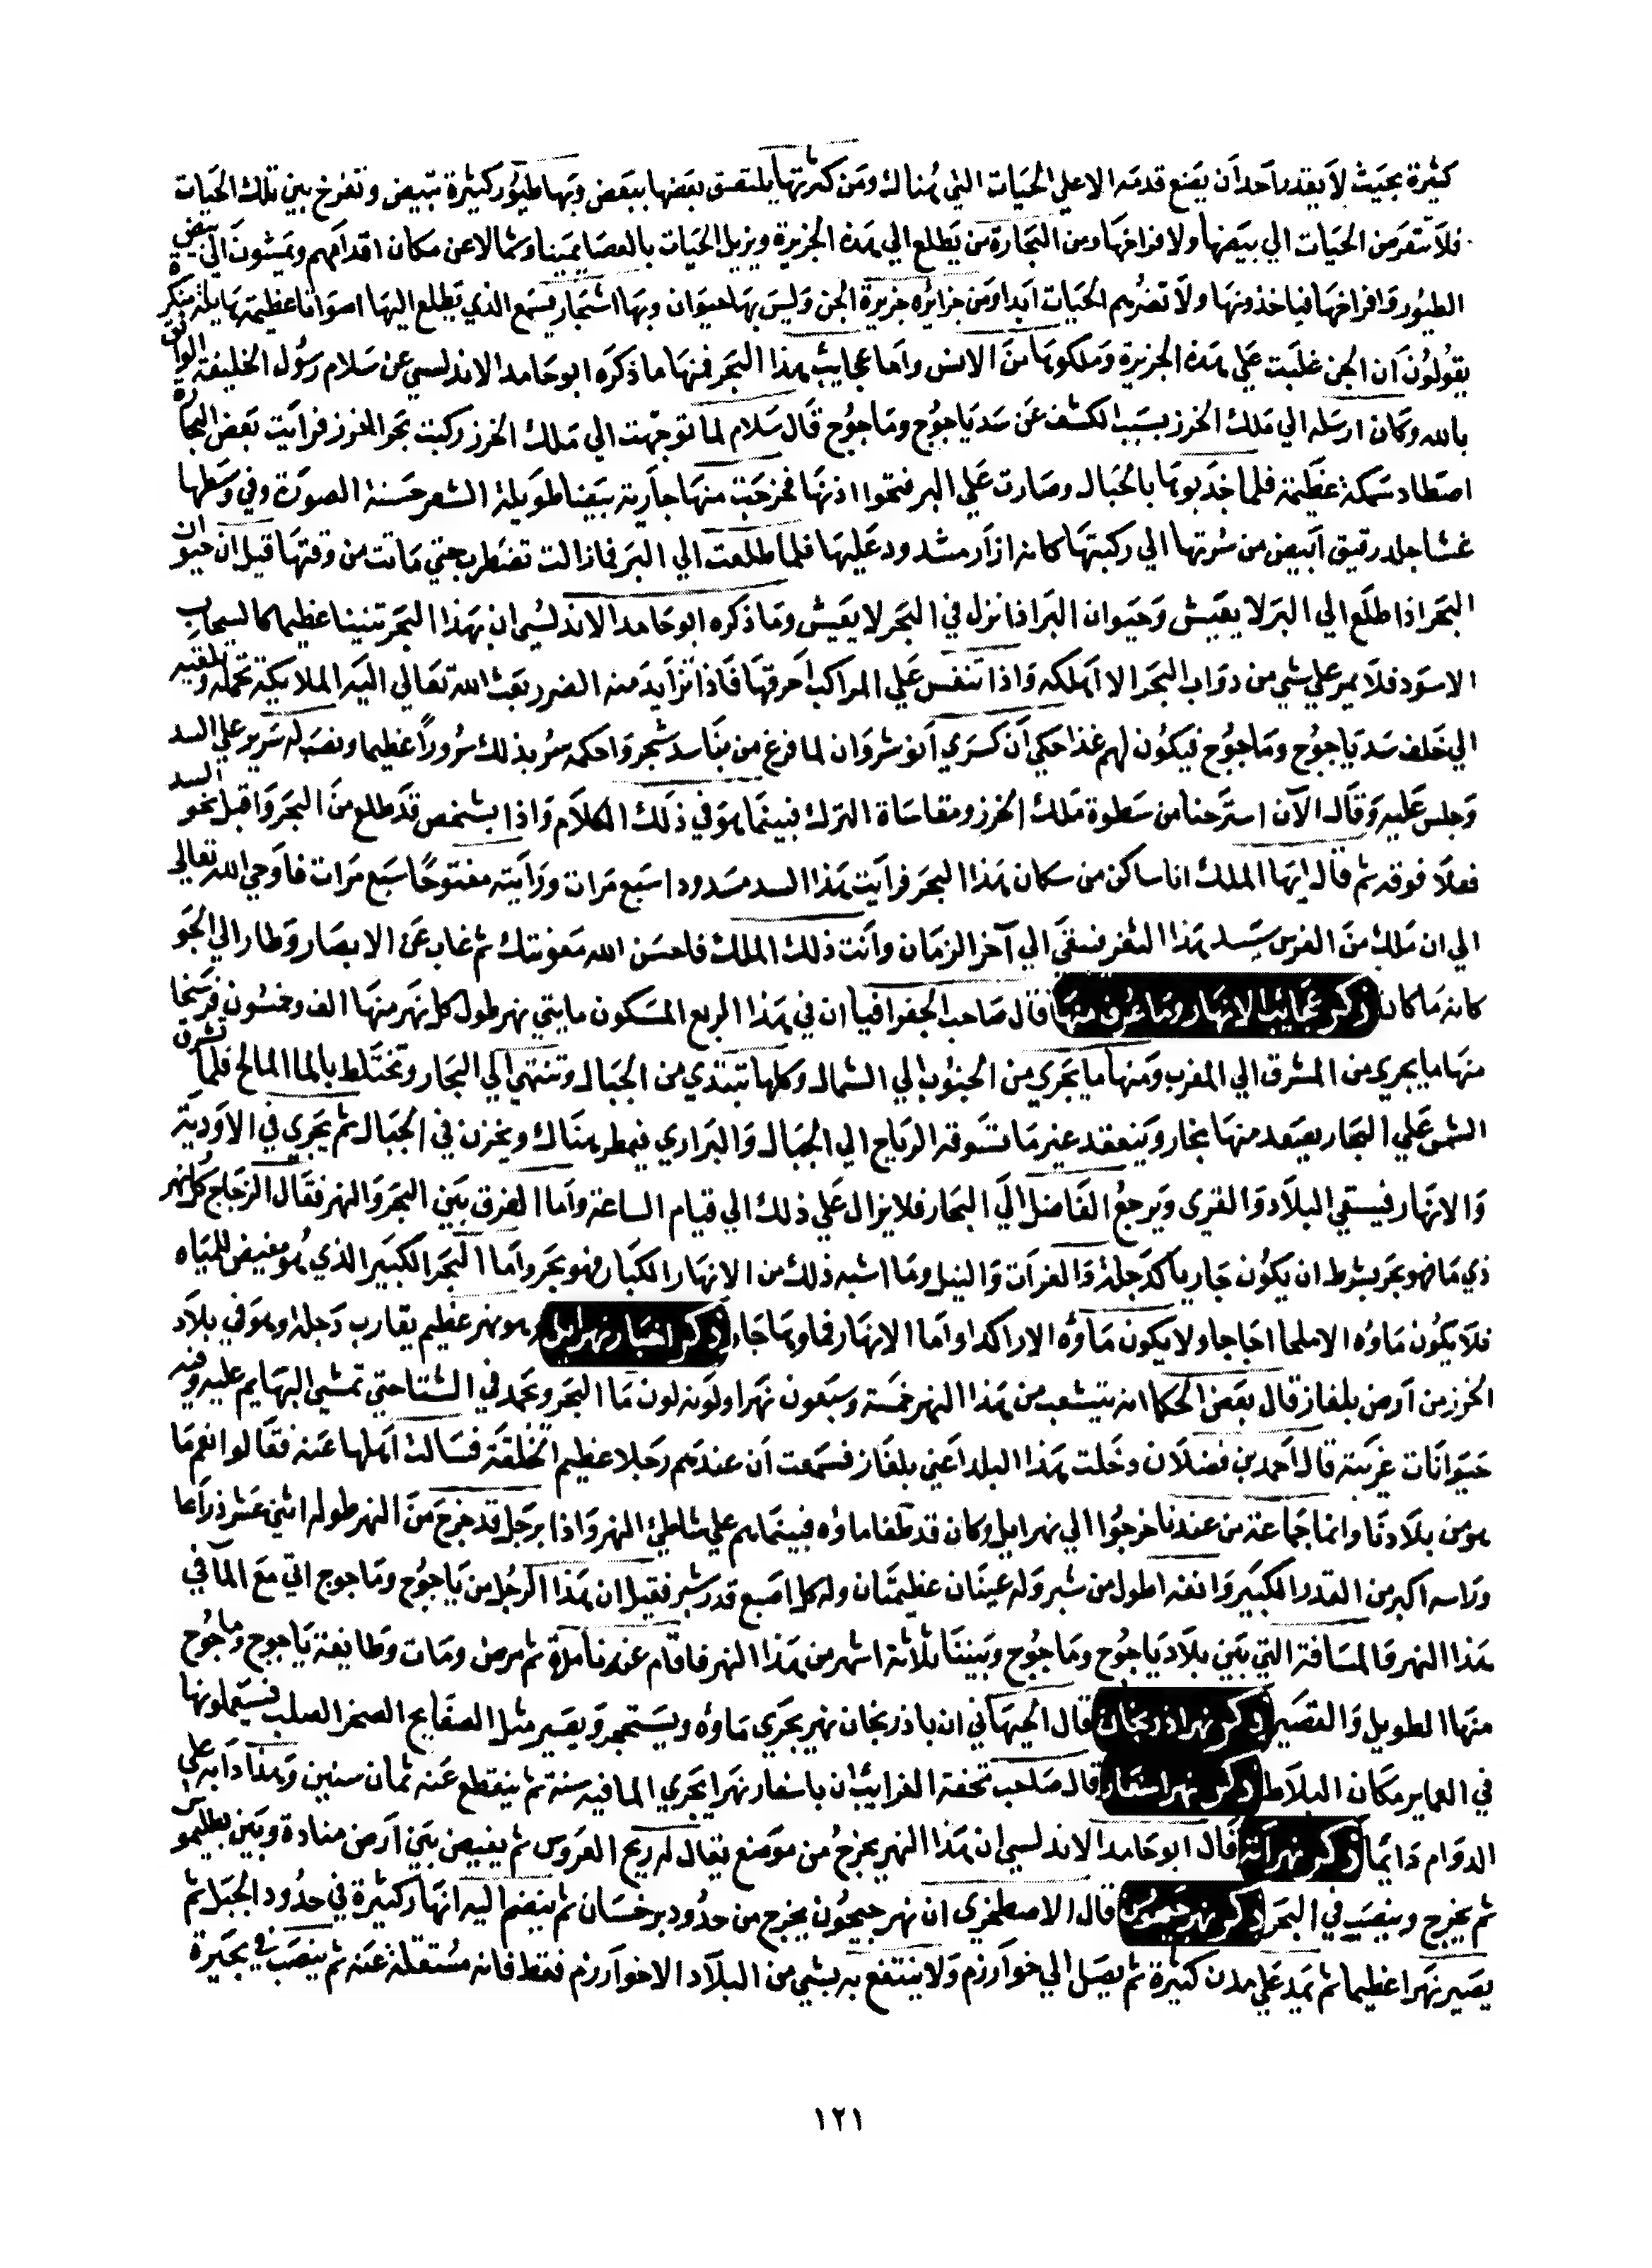 كثيرة بحيث لا يقدر احد ان يضع قدمه الا علي الحيات التي هناك ومن كثرتها يلتصق بعضها ببعض وبها طيور كثيرة تبيض وتفرخ بين تلك الحيات
فلا تتعرض الحيات الي بيضها ولا فراخها ومن التجارة من يطلع الي هذه الجزيرة ويزيل الحيات بالعصا يمينا وشمالا عن مكان اقدامهم ويمشون الي بيض
الطيور وافراخها فياخذونها ولا تضرهم الحيات ابدا ومن جزائره جزيرة الجن وليس بها حيوان وبها اشجار يسمع الذي يطلع اليها اصواتا عظيمة هايلة منكرة
يقولون ان الجن غلبت علي هذه الجزيرة وملكوها من الانس واما عجايب هذا البحر فمنها ما ذكره ابو حامد الاندلسي عن سلام رسول الخليفة الواثق
بالله وكان ارسله الي ملك الخرز بسبب الكشف عن سد ياجوج وماجوج قال سلام لما توجهت الي ملك الخرز ركبت بحر الخرز فرايت بعض التجارة
اصطاد سمكة عظيمة فلما جذبوها بالحبال وصارت علي البر فتحوا اذنها فخرجت منها جارية بيضا طويلة الشعر حسنة الصورة وفي وسطها
غشا جلد رقيق ابيض من سرتها الي ركبتها كانه ازار مشدود عليها فلما طلعت الي البر فما زالت تضطرب حتي ماتت من وقتها قيل ان حيوان
البحر اذا طلع الي البر لا يعيش وحيوان البر اذا نزل في البحر لا يعيش وما ذكره ابو حامد الاندلسي ان بهذا البحر تنينا عظيما كالسحاب
الاسود فلا يمر علي شي من دواب البحر الا اهلكه واذا تنفس علي المراكب احرقها فاذا تزايد منه الضرر بعث الله تعالي اليه الملايكة تحمله وتلقيه
الي خلف سد ياجوج وماجوج فيكون لهم غذا حكي ان كسري انوشروان لما فرغ من بنا سد شجر واحكمه سر بذلك سرورا عظيما ونصب له سرير علي السد
وجلس عليه وقال الآن استرحنا من سطوة ملك الخرز ومقاساة الترك فبينما هو في ذلك الكلام واذا بشخص قد طلع من البحر واقبل نحو السد
فعلا فوقه ثم قال ايها الملك انا ساكن من سكان هذا البحر فرايت هذا السد مسدودا سبع مرات ورايته مفتوحا سبع مرات فاوحي الله تعالي
الي ان ملك من الفرس يسد هذا الثغر فيبقي الي آخر الزمان وانت ذلك الملك فاحسن الله معونتك ثم غاب عن الابصار وطار الي الجو
كانه ما كان ذكر عجايب الانهار وما عرف منها قال صاحب الجغرافيا ان في هذا الربع المسكون مايتي نهر طول كل نهر منها الف وخمسون فرسخا
منها ما يجري من المشرق الي المغرب ومنها ما يجري من الجنوب الي الشمال وكلها تبتدي من الجبال وتنتهي الي البحار وتختلط بالما المالح فلما تشرق
الشمس علي البحار يصعد منها بخار وينعقد غير ما تسوقه الرياح الي الجبال والبراري فيمطر هناك ويخزن في الجبال ثم يجري في الاودية
والانهار فيسقي البلاد والقرى ويرجع الفاضل الي البحار فلا يزال علي ذلك الي قيام الساعة واما الفرق بين البحر والنهر فقال الزجاج كل نهر
ذي ما فهو بحر بشرط ان يكون جاريا كدجلة والفرات والنيل وما اشبه ذلك من الانهار الكبار فهو بحر واما البحر الكبير الذي هو مغيض للمياه
فلا يكون ماؤه الا ملحا اجاجا ولا يكون ماؤه الا راكدا واما الانهار فماوها جار ذكر اخبار نهر اتيل هو نهر عظيم يقارب دجلة وهو في بلاد
الخرز من ارض بلغاز قال بعض الحكما انه يتشعب من هذا النهر خمسة وسبعون نهرا ولونه لون ما البحر ويجمد في الشتا حتي تمشي البهايم عليه وفيه
حيوانات غريبة قال احمد بن فضلان دخلت هذا البلد اعني بلغاز فسمعت ان عندهم رجلا عظيم الخلقة فسالت اهلها عنه فقالوا نعم ما
هو من بلادنا وانما جماعة من عندنا خرجوا الي نهر ايل وكان قد طفا ماؤه فبينما هم علي شاطئ النهر واذا برجل قد خرج من النهر طوله اثني عشر ذراعا
وراسه اكبر من القدر الكبير وانفه اطول من شبر وله عينان عظيمتان وله كل اصبع قدر شبر فقيل ان هذا الرجل من ياجوج وماجوج اتي مع المآ في
هذا النهر فالمسافة التي بين بلاد ياجوج وماجوج وبيننا ثلاثة اشهر من هذا النهر فاقام عندنا مدة ثم مرض ومات وطايفة ياجوج وماجوج
منها الطويل والقصير ذكر نهر اذربجان قال الجيهاني ان باذربجان نهر يجري ماؤه ويستحجر ويصير مثل الصفايح الصخر الصلب فيستعملونها
في العماير مكان البلاط ذكر نهر اسفار قال صاحب تحفة الغرايب ان باسفار نهرا يجري الما فيه سنة ثم ينقطع عنه ثمان سنين وهذا دابه علي
الدوام دايما ذكر نهر انه قال ابو حامد الاندلسي ان هذا النهر يخرج من موضع يقال له ريح العروس ثم يغيض بين ارض منادة وبين بطليموس
ثم يخرج وينصب في البحر ذكر نهر جيحون قال الاصطخري ان نهر جيحون يخرج من حدود برخسان ثم ينضم اليه انهار كثيرة في حدود الجبل ثم
يصير نهرا عظيما ثم يمد علي مدن كثيرة ثم يصل الي خوارزم ولا ينتفع به بشي من البلاد الا خوارزم فقط فانه مستقلة عنه ثم ينصب في بحيرة
١٢١